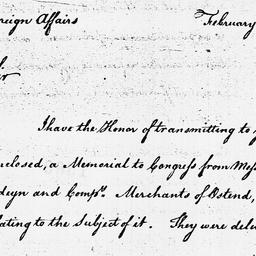 reign Affairs February
r
I have the Honor of transmitting to y
nclosed, a Memorial to Congress from Mess
deyn and Compy. Merchants of Ostend,
lating to the Subject of it. They were deliv